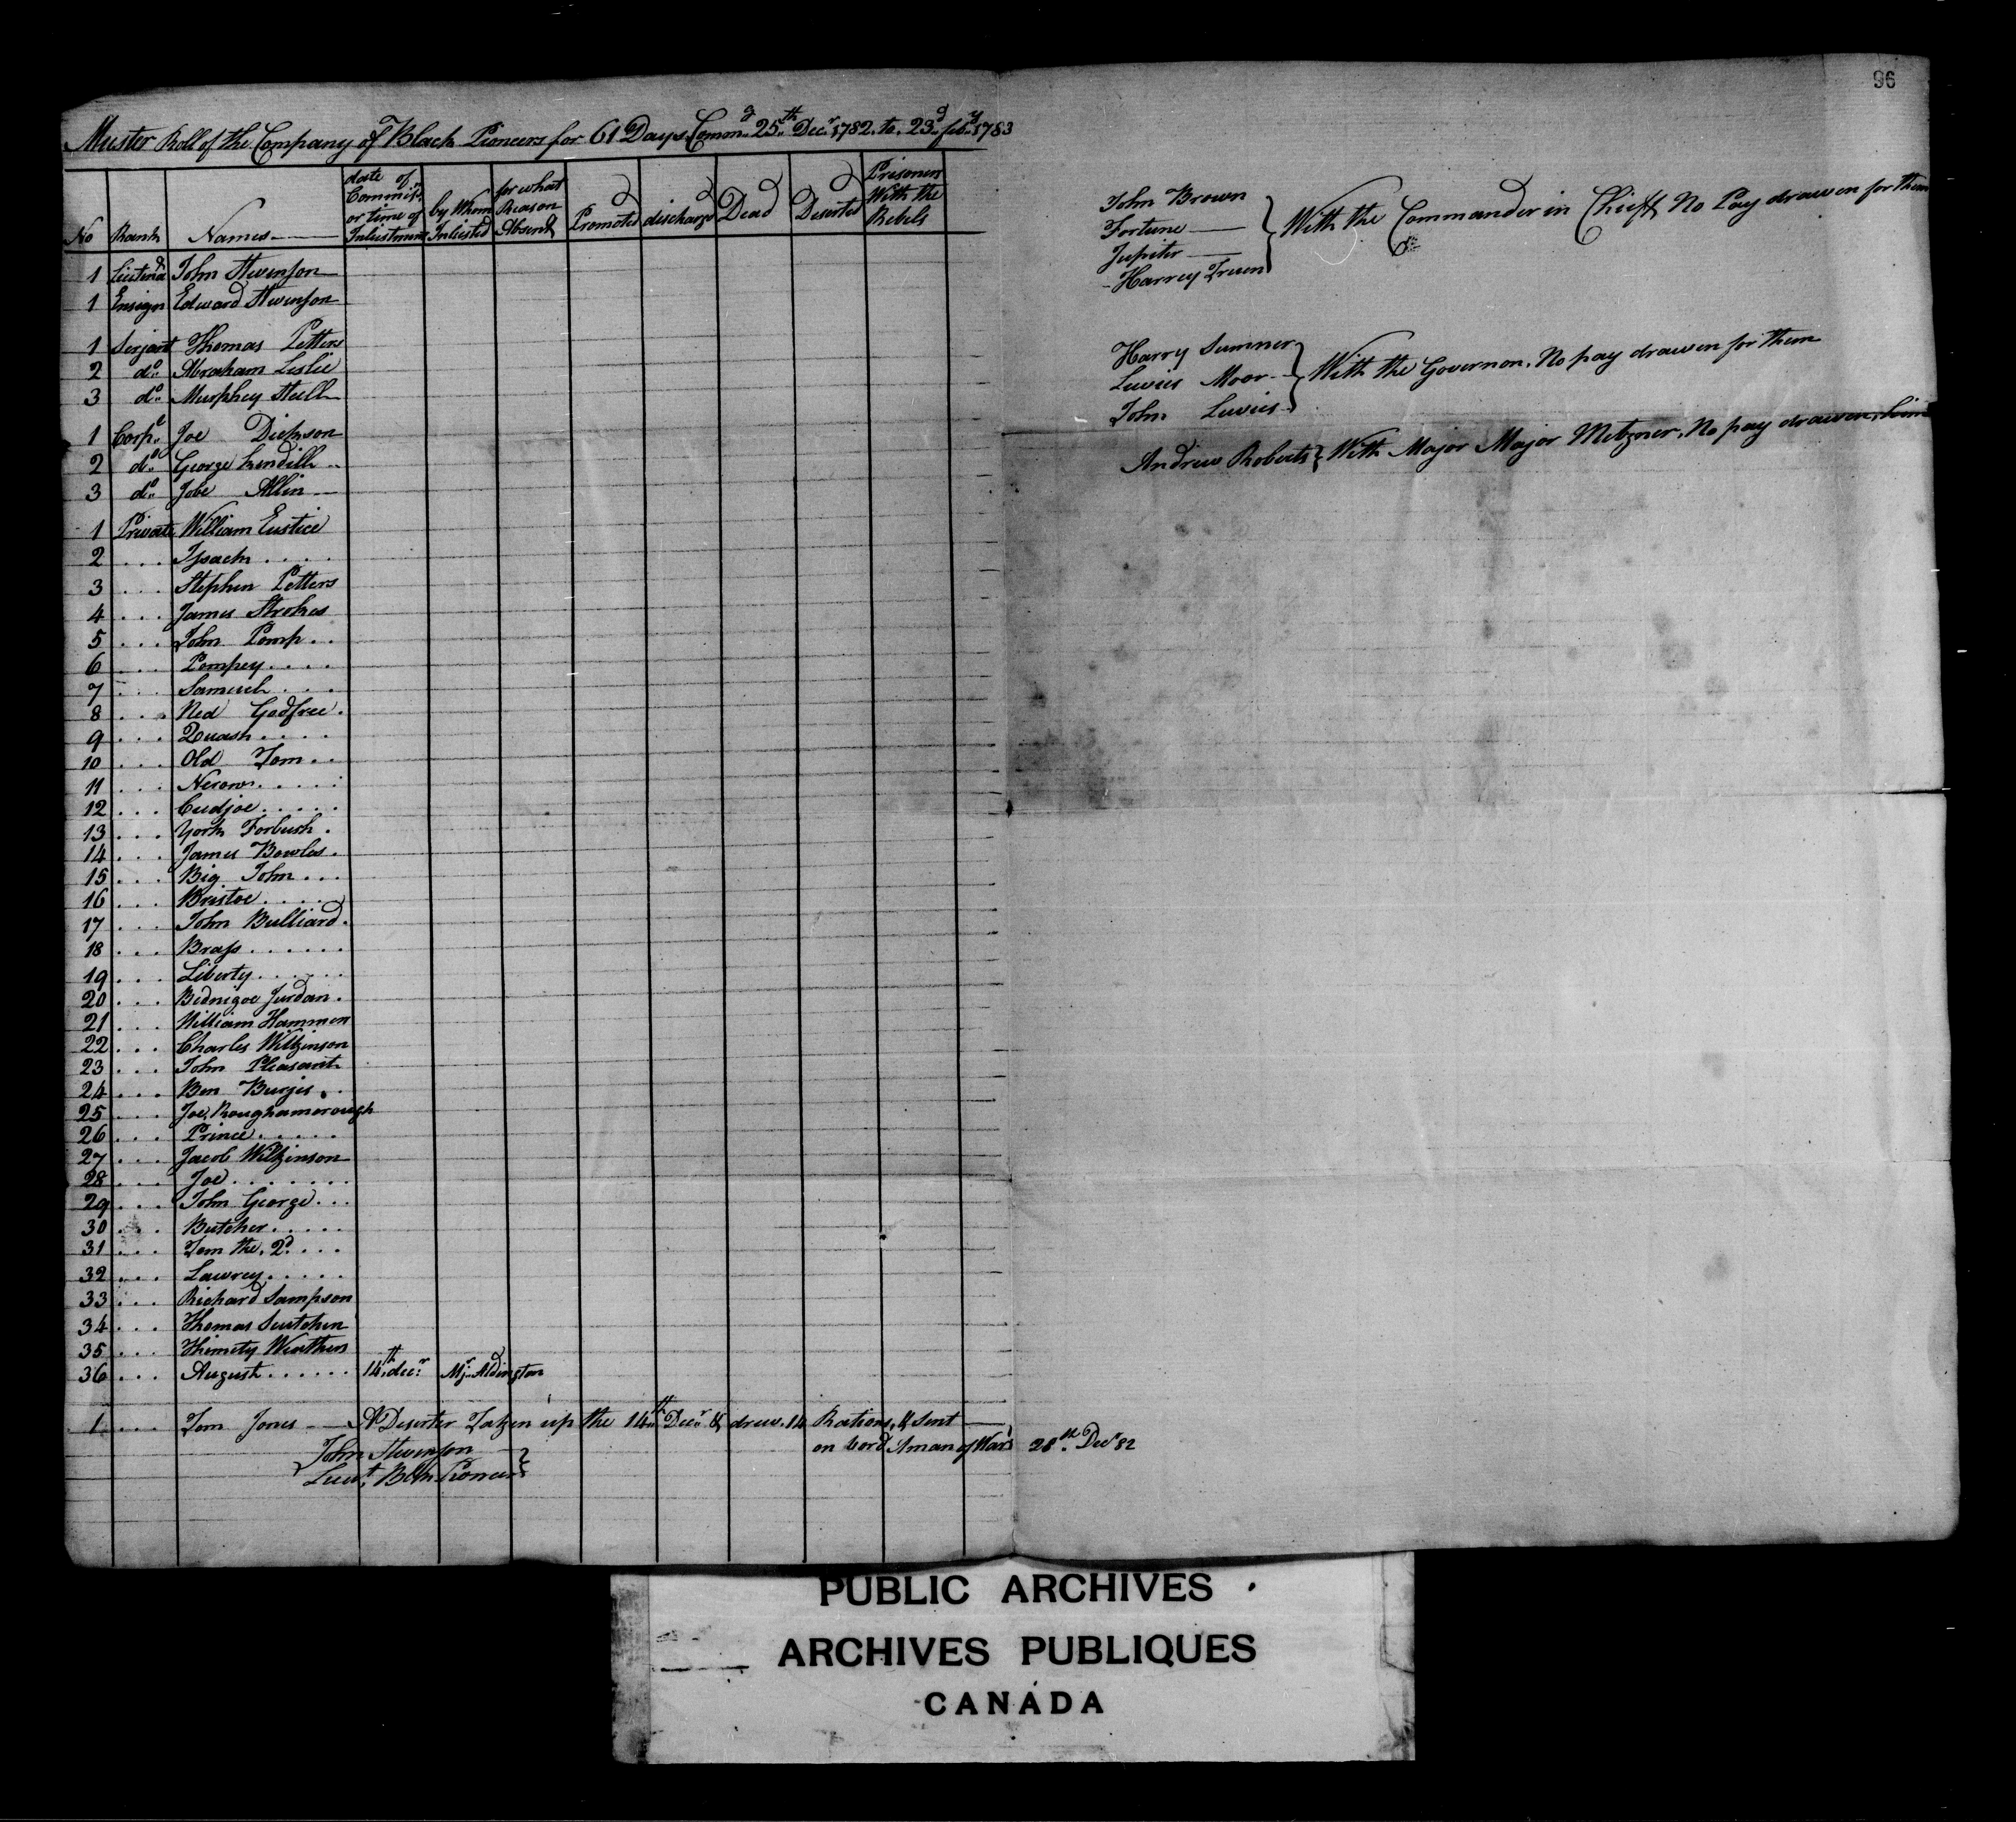 96
Muster Roll of the Company of Black Pioneers for 61 Days Commg 25th Decr 1782 to 23d feby 1783
No Rank Names date of Commisn or time of Inlistment by Whom Inlisted for what Reason Absent Promoted discharged Dead Deserted Prisoners With the Rebels
1 Lieutend John Stvenson
1 Ensign Edward Stvenson
1 Serjant Thomas Petters
2 do Abraham Leslie
3 do Murphey Still
1 Corpl Joe Dickson
2 do George Kendill
3 do Jobe Allin
1 Private William Eustice
2 ... Isaack ....
3 ... Stephen Petters
4 ... James Strokes
5 ... John Pomp ..
6 ... Pompey ....
7 ... Samuel ...
8 ... Ned Godfree .
9 ... Quash ....
10 ... Old Tom ..
11 ... Nerow .....
12 ... Cudjoe .....
13 ... York Forbush .
14 ... James Bowlas .
15 ... Big John ...
16 ... Bristoe .....
17 ... John Bulliard .
18 ... Brass ......
19 ... Liberty ......
20 ... Bednigoe Jurdan .
21 ... William Hammon
22 ... Charles Wilkinson
23 ... John Pleasant
24 ... Ben Burges ..
25 ... Joe Roughamorough
26 ... Prince .....
27 ... Jacob Wilkinson
28 ... Joe .......
29 ... John George ...
30 ... Butcher .....
31 ... Tom the 2d ...
32 ... Lawrey .....
33 ... Richard Sampson
34 ... Thomas
35 ... Thimety Weathers
36 ... August ...... 14th decr Mjr Aldington
1 ... Tom Jones — A Deserter Taken up the 14th Decr & drew 14 Rations, & Sent
on bord A man of War 28th Decr 82
John Stvenson
Lieut Blk Pioneers
John Brown
Fortune —
Jupiter —
Harrey Truen
With the Commander in Chieff No Pay drawen for them
Harry Sumner
Lewies Moor
John Lewies
With the Governor. No pay drawen for them
Andrew Roberts } With Major Major Metzner, No pay drawen, him
PUBLIC ARCHIVES
ARCHIVES PUBLIQUES
CANADA